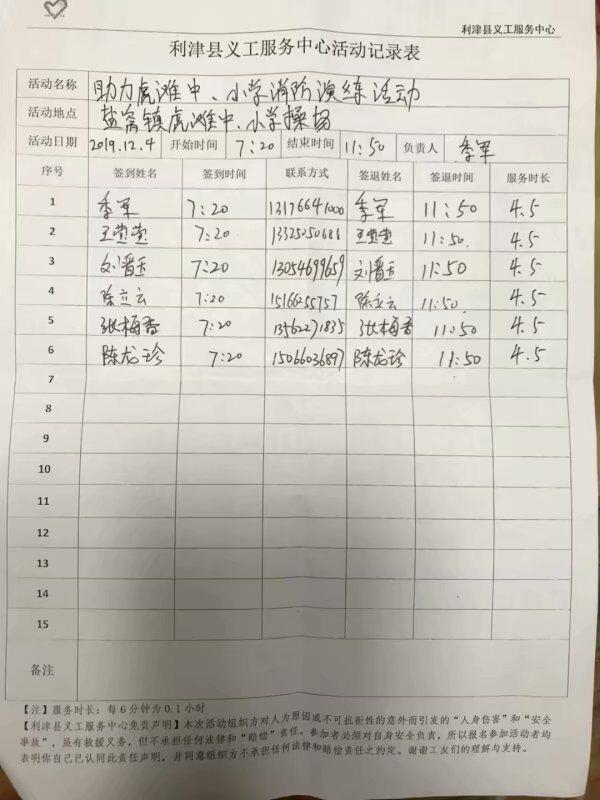 利津县义工服务中心
利津县义工服务中心活动记录表
活动名称 助力虎滩中、小学消防演练活动
活动地点 盐窝镇虎滩中、小学操场
活动日期 2019.12.4 开始时间 7:20 结束时间 11:50 负责人 李军
序号 签到姓名 签到时间 联系方式 签退姓名 签退时间 服务时长
1 李军 7:20 13176641000 李军 11:50 4.5
2 王莹莹 7:20 1332505068 王莹莹 11:50. 4.5
3 刘晋玉 7:20 13054699659 刘晋玉 11:50 4.5
4 陈立云 7:20 15166255757 陈立云 11:50. 4.5
5 张梅香 7:20 13562271835 张梅香 11:50 4.5
6 陈龙珍 7:20 15066036897 陈龙珍 11:50 4.5
7
8
9
10
11
12
13
14
15
备注
【注】服务时长：每6分钟为0.1小时
【利津县义工服务中心免责声明】本次活动组织方对人为原因或不可抗拒性的意外而引发的“人身伤害”和“安全
事故”，虽有救援义务，但不承担任何法律和“赔偿”责任。参加者必须对自身安全负责，所以报名参加活动者均
表明你自己已认同此责任声明，并同意组织方不承担任何法律和赔偿责任之约定。谢谢工友们的理解与支持。